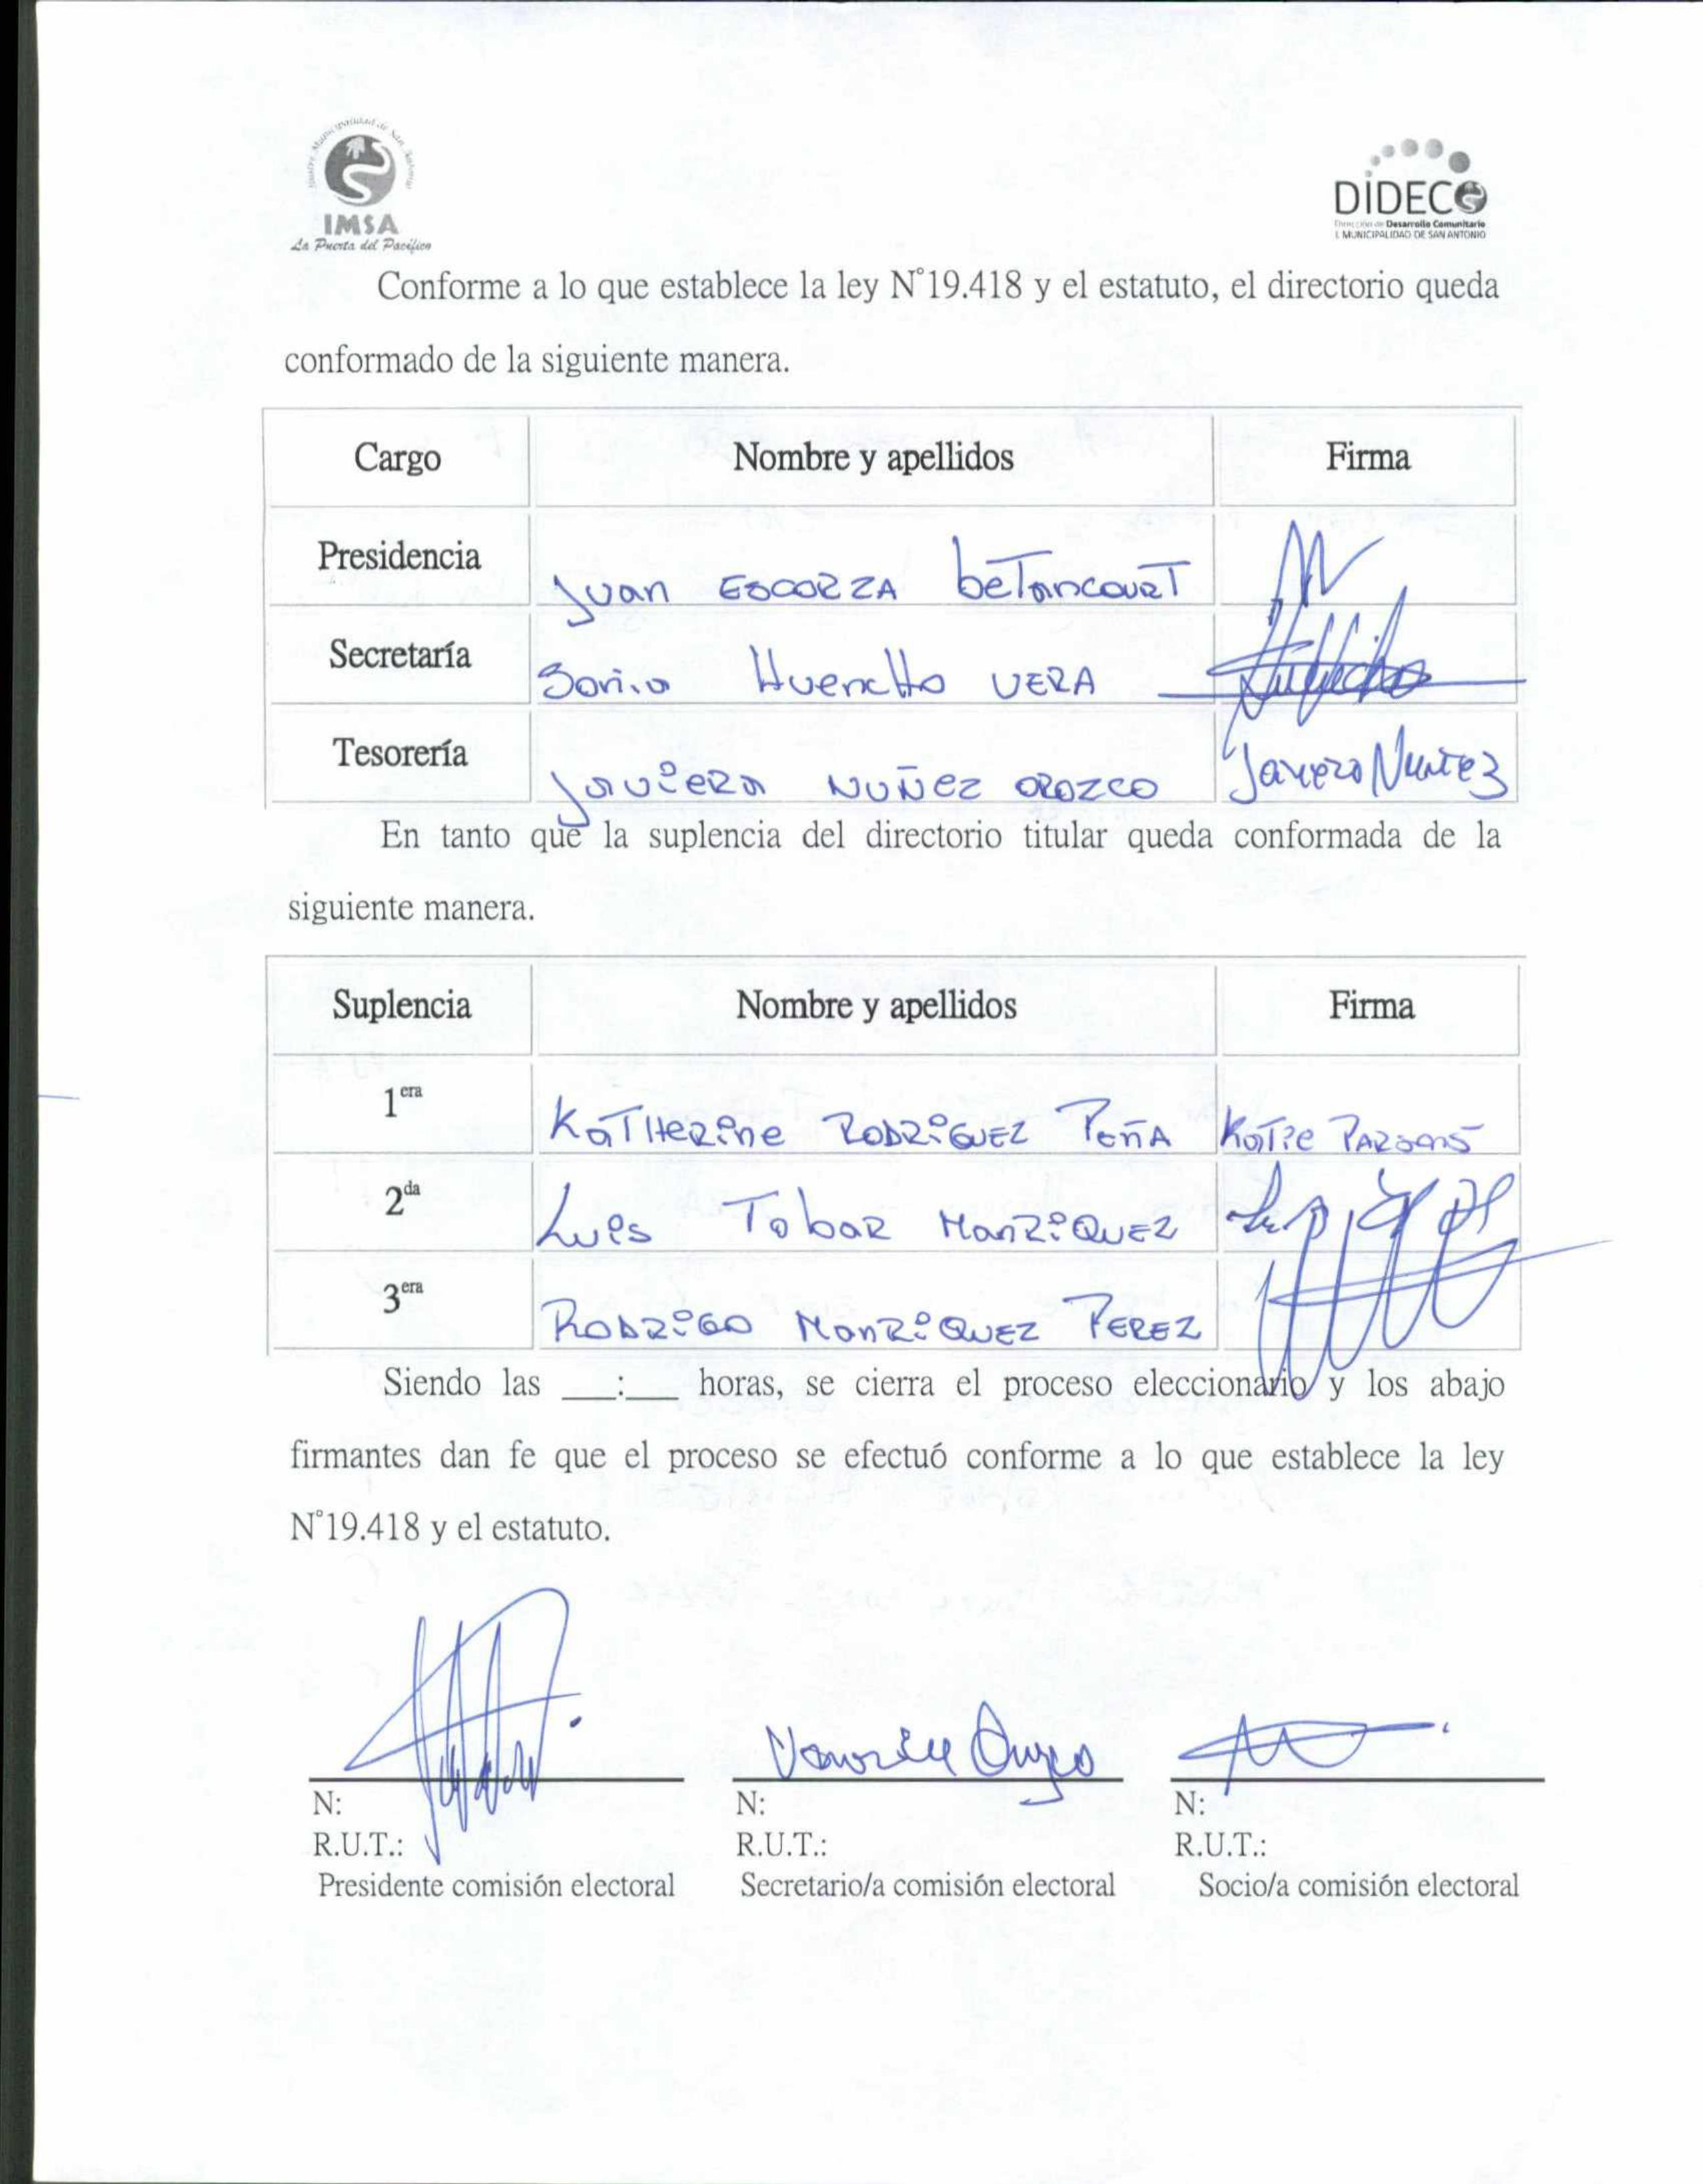 Ilustre Municipalidad de San Antonio
IMSA
La Puerta del Pacífico
DIDECO
Dirección de Desarrollo Comunitario
I. MUNICIPALIDAD DE SAN ANTONIO
Conforme a lo que establece la ley N°19.418 y el estatuto, el directorio queda
conformado de la siguiente manera.
Cargo Nombre y apellidos Firma
Presidencia Juan ESCORZA beTancourT
Secretaría Sonia HuencHo VERA
Tesorería JaviERa NUÑEZ OROZCO Javiera Nuñez
En tanto que la suplencia del directorio titular queda conformada de la
siguiente manera.
Suplencia Nombre y apellidos Firma
1era KaTHeRine RODRiGUEZ PeñA KaTie PARsons
2da Luis TobaR ManRiQUEZ
3era RODRiGO ManRiQUEZ PEREZ
Siendo las ___:___ horas, se cierra el proceso eleccionario y los abajo
firmantes dan fe que el proceso se efectuó conforme a lo que establece la ley
N°19.418 y el estatuto.
N: N: N:
R.U.T.: R.U.T.: R.U.T.:
Presidente comisión electoral Secretario/a comisión electoral Socio/a comisión electoral